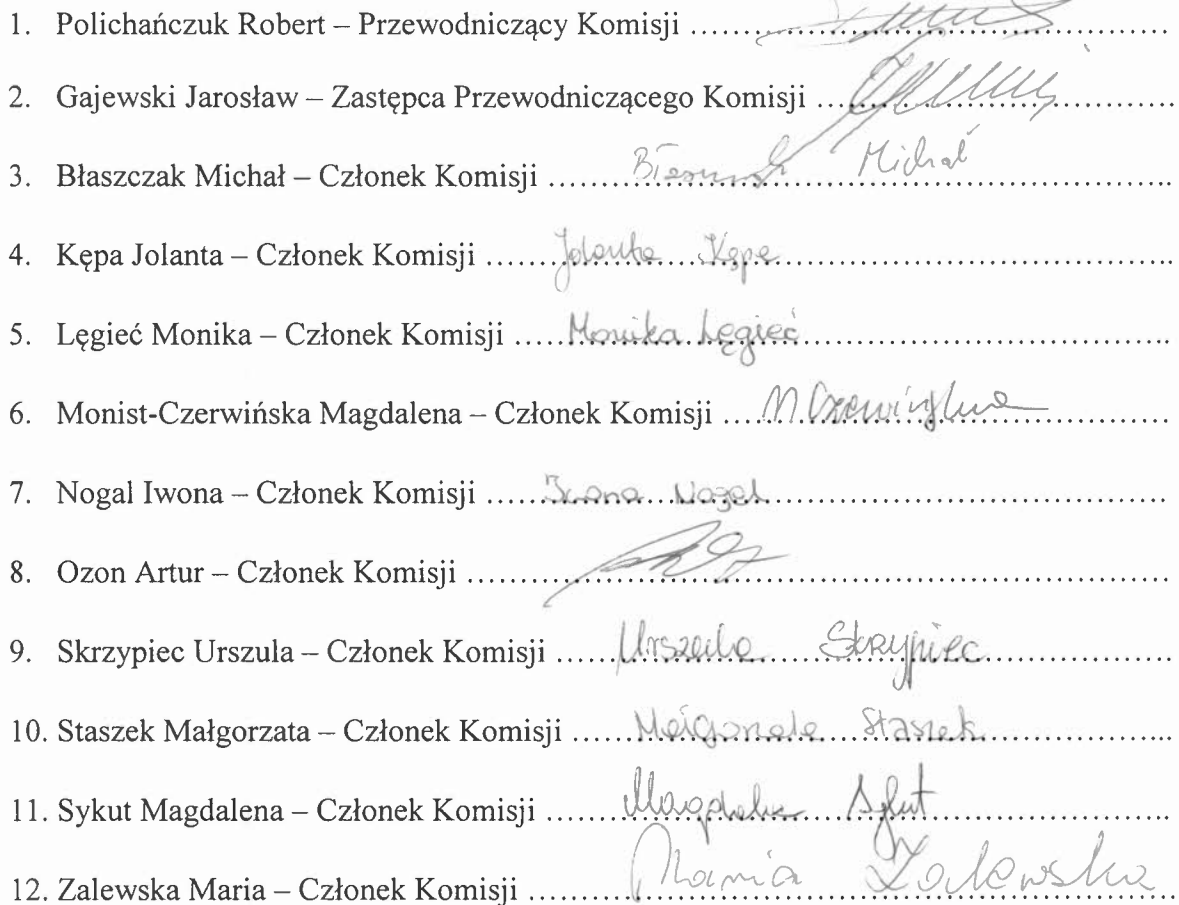 1. Polichańczuk Robert – Przewodniczący Komisji ..........
2. Gajewski Jarosław – Zastępca Przewodniczącego Komisji ..........
3. Błaszczak Michał – Członek Komisji .......... Michał
4. Kępa Jolanta – Członek Komisji .......... Jolanta Kępa
5. Lęgieć Monika – Członek Komisji .......... Monika Lęgieć
6. Monist-Czerwińska Magdalena – Członek Komisji .......... M. Czerwińska
7. Nogal Iwona – Członek Komisji .......... Iwona Nogal
8. Ozon Artur – Członek Komisji ..........
9. Skrzypiec Urszula – Członek Komisji .......... Urszula Skrzypiec
10. Staszek Małgorzata – Członek Komisji .......... Małgorzata Staszek
11. Sykut Magdalena – Członek Komisji .......... Magdalena Sykut
12. Zalewska Maria – Członek Komisji .......... Maria Zalewska